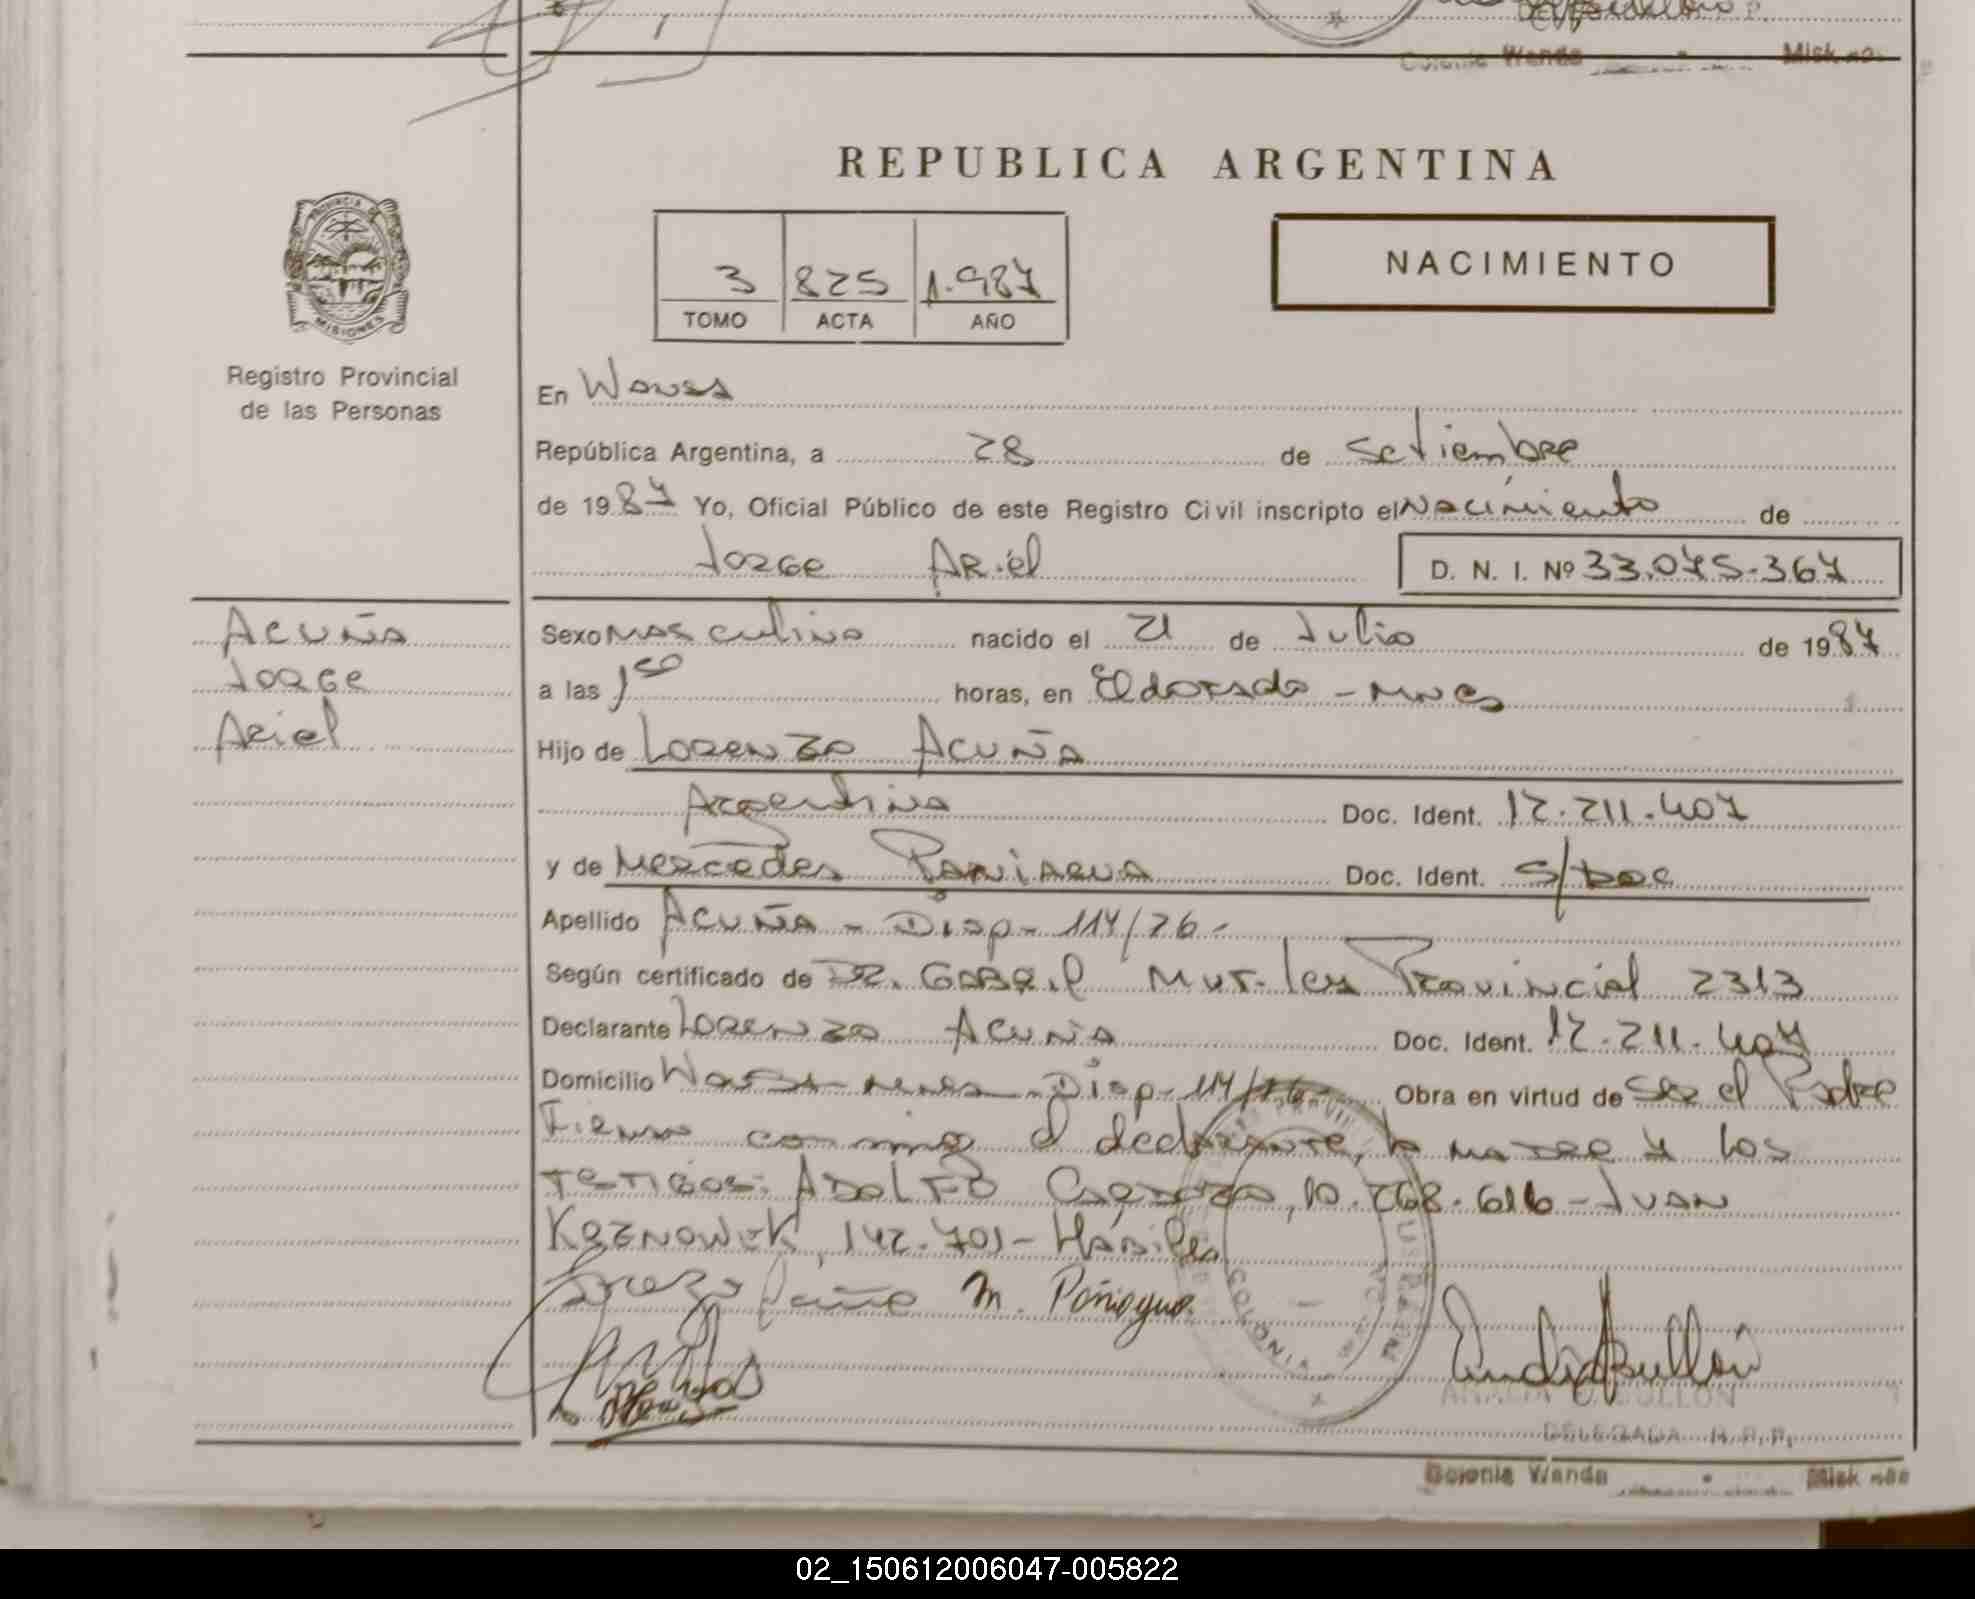 Colonia Wanda
REPUBLICA ARGENTINA
PROVINCIA DE
MISIONES
Registro Provincial
de las Personas
3 825 1.987
TOMO ACTA AÑO
NACIMIENTO
En Wanda
República Argentina, a 28 de Setiembre
de 1987 Yo, Oficial Público de este Registro Civil inscripto el Nacimiento de
Jorge Ariel D. N. I. Nº 33.075.367
Acuña
Jorge
Ariel
Sexo Masculino nacido el 21 de Julio de 1987
a las 1 horas, en Eldorado - Mnes
Hijo de Lorenzo Acuña
Argentina Doc. Ident. 12.211.407
y de Mercedes Paniagua Doc. Ident. S/Doc
Apellido Acuña - Disp - 114/76 -
Según certificado de Dr. Gabriel Mut. Ley Provincial 2313
Declarante Lorenzo Acuña Doc. Ident. 12.211.407
Domicilio Wanda Mnes - Disp - 114/76 - Obra en virtud de Ser el Padre
Firman conmigo el declarante, la madre y los
Testigos: Adolfo Cardozo, 10.268.616 - Juan
142.701 - Hábiles
M. Paniagua
COLONIA
BULLON
DELEGADA R.P.P.
Colonia Wanda Misiones
02_150612006047-005822